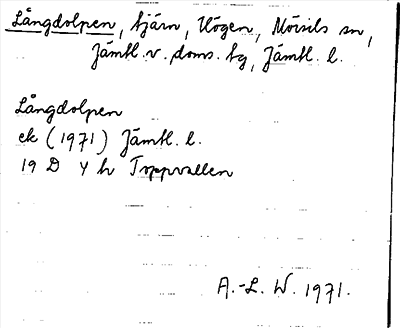 Långdolpen, tjärn, Högen, Mörsils sn,
Jämtl. v. doms. tg, Jämtl. l.
Långdolpen
ek (1971) Jämtl. l.
19 D 4 h Troppvallen
A.-L. W. 1971.